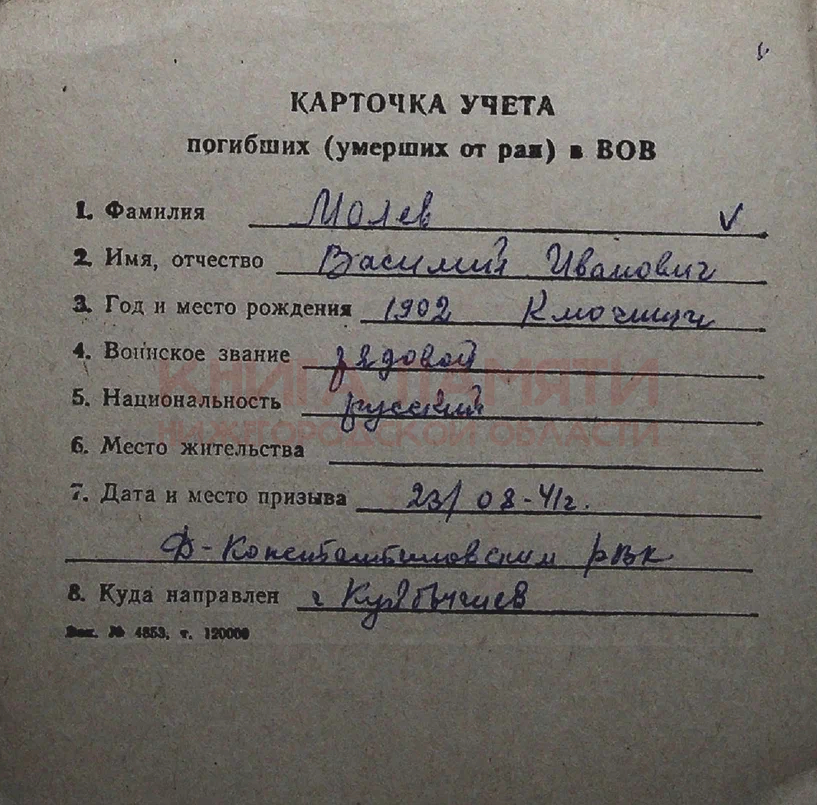 КАРТОЧКА УЧЕТА
погибших (умерших от ран) в ВОВ
1. Фамилия Молев
2. Имя, отчество Василий Иванович
3. Год и место рождения 1902
4. Воинское звание рядовой
5. Национальность русский
КНИГА ПАМЯТИ
НИЖЕГОРОДСКОЙ ОБЛАСТИ
6. Место жительства
7. Дата и место призыва 23/08-41г.
Д-Константиновским РВК
8. Куда направлен г Куйбышев
Зак. № 4853, т. 120000